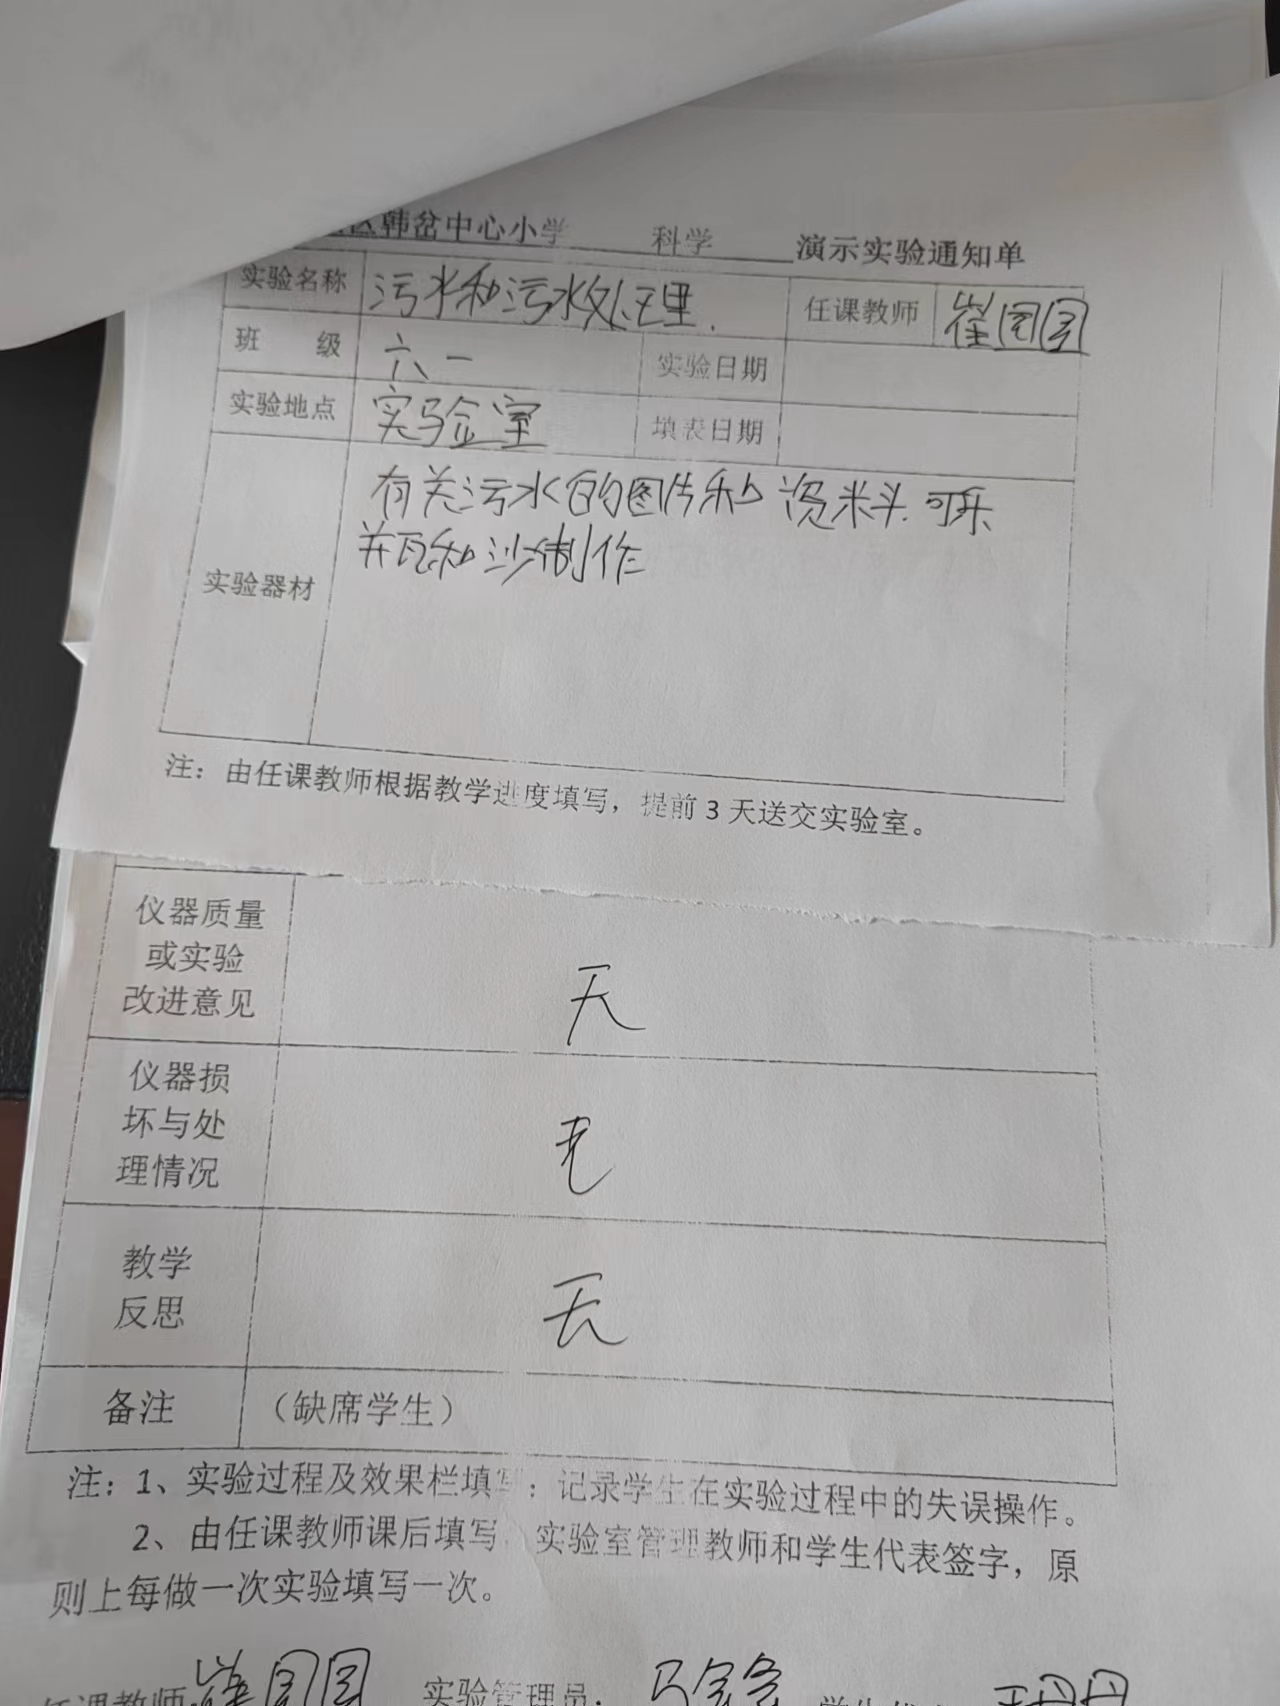 区韩岔中心小学 科学 演示实验通知单
实验名称 污水和污水处理. 任课教师 崔园园
班 级 六一 实验日期
实验地点 实验室 填表日期
实验器材 有关污水的图片和资料.可乐
瓦和沙制作
注：由任课教师根据教学进度填写，提前3天送交实验室。
仪器质量
或实验
改进意见 无
仪器损
坏与处
理情况 无
教学
反思 无
备注 （缺席学生）
注：1、实验过程及效果栏填写：记录学生在实验过程中的失误操作。
2、由任课教师课后填写 实验室管理教师和学生代表签字，原
则上每做一次实验填写一次。
任课教师 崔园园 实验管理员： 学生代